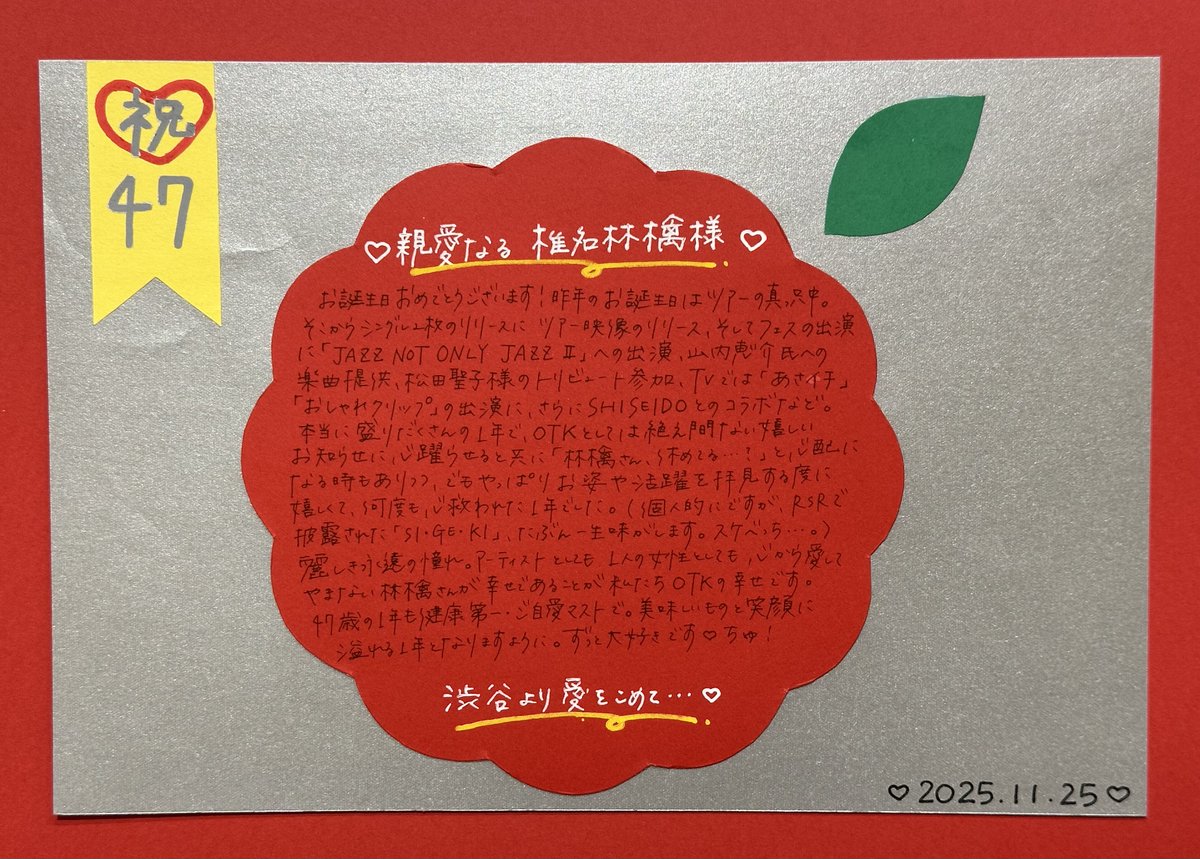 祝
47
♡親愛なる 椎名林檎様♡
お誕生日おめでとうございます！昨年のお誕生日はツアーの真っ只中。
そこからシングル2枚のリリースに ツアー映像のリリース、そしてフェスの出演
に「JAZZ NOT ONLY JAZZ Ⅱ」への出演、山内恵介氏への
楽曲提供、松田聖子様のトリビュート参加、TVでは「あさイチ」
「おしゃれクリップ」の出演に、さらにSHISEIDOとのコラボなど。
本当に盛りだくさんの1年で、OTKとしては絶え間ない嬉しい
お知らせに、心躍らせると共に「林檎さん、休めてる…？」と心配に
なる時もありつつ、でもやっぱりお姿や活躍を拝見する度に
嬉しくて、何度も心救われた1年でした。（個人的にですが、RSRで
披露された「SI・GE・KI」、たぶん一生味がします。スケベっち…。）
麗しき永遠の憧れ。アーティストとしても1人の女性としても、心から愛して
やまない林檎さんが幸せであることが私たちOTKの幸せです。
47歳の1年も健康第一・ご自愛マストで。美味しいものと笑顔に
溢れる1年となりますように。ずっと大好きです♡ちゅ！
渋谷より愛をこめて…♡
♡2025.11.25♡